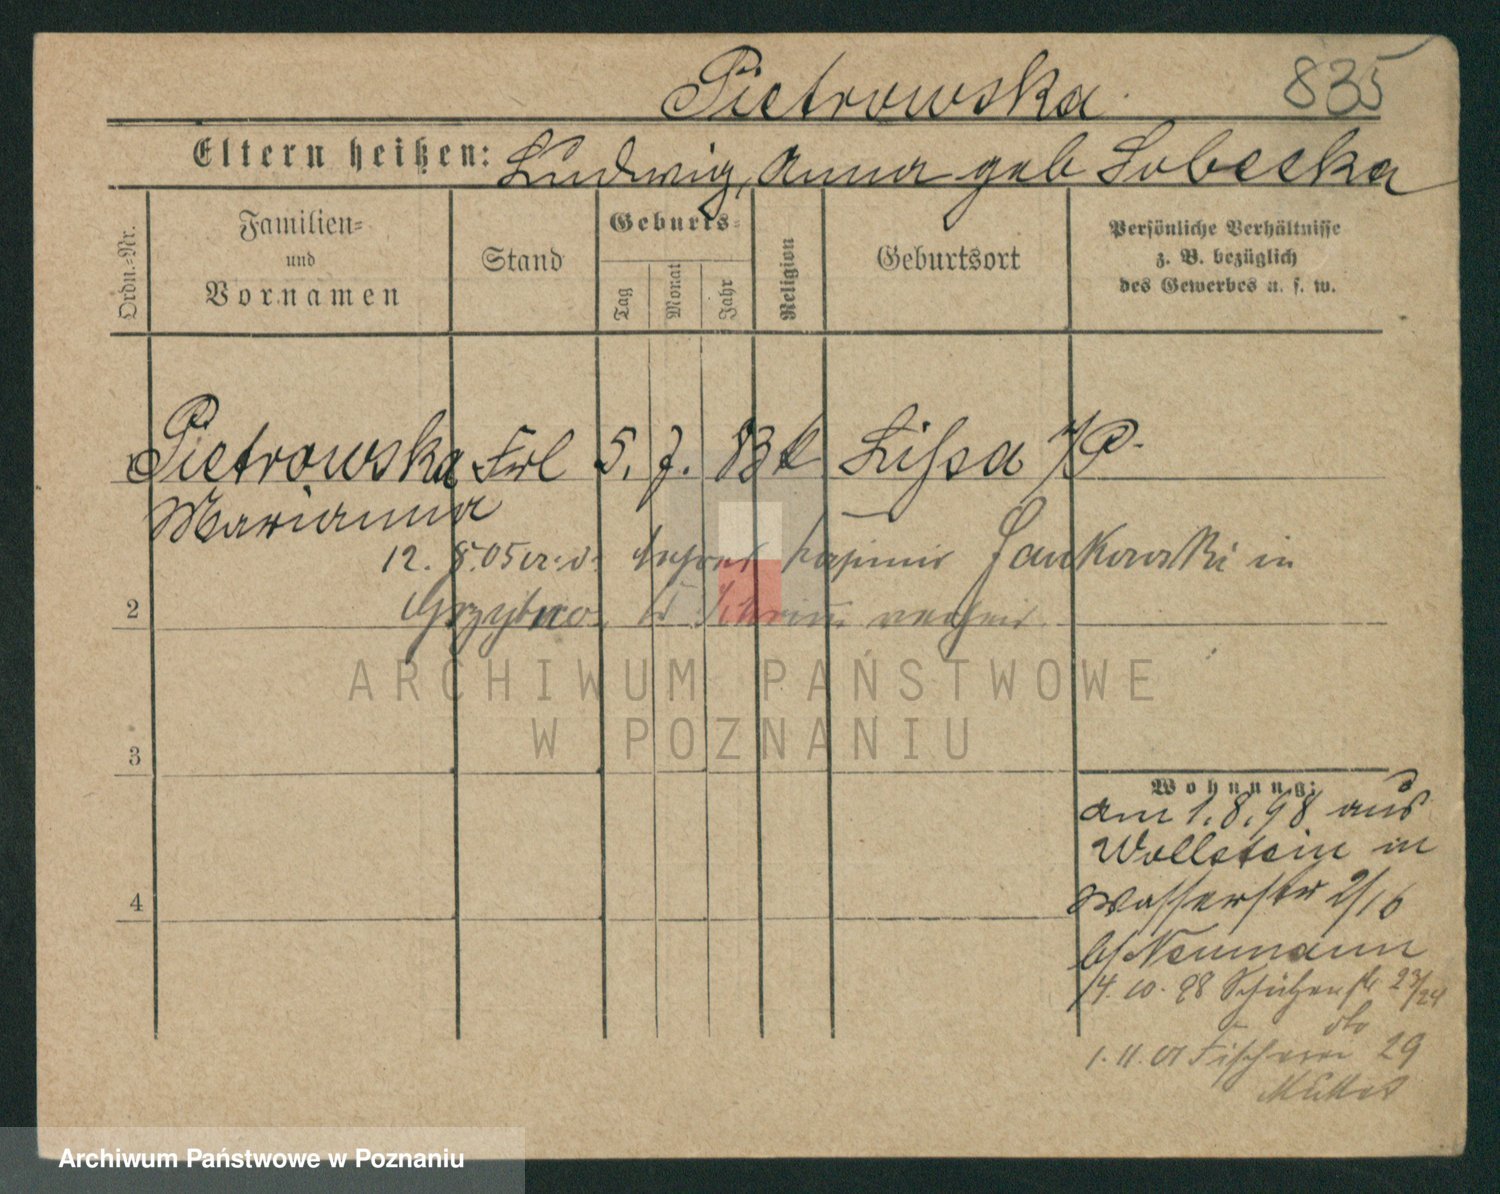 Pietrowska
835
Eltern heißen: Ludwig, Anna geb Sobecka
Ordn.=Nr.
Familien= und Vornamen
Stand
Geburts=
Tag
Monat
Jahr
Religion
Geburtsort
Persönliche Verhältnisse
z. B. bezüglich
des Gewerbes u. s. w.
Pietrowska Frl 5. 7. 83 k Lissa i/P.
Marianna
12. 8. 05 Kasimir Jankowski in
2
Grzybno, Schrim verheir.
ARCHIWUM PAŃSTWOWE
W POZNANIU
3
Wohnung:
am 1. 8. 98 aus
Wollstein in
4
Wasserstr 2/16
b/ Neumann
14. 10. 98 Schützenstr 23/24
dto
1. 11. 01 Fischerei 29
Archiwum Państwowe w Poznaniu